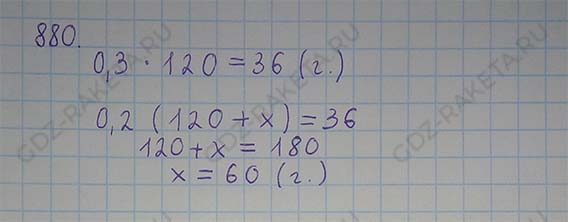 880.
0,3 · 120 = 36 (г.)
0,2 (120 + x) = 36
120 + x = 180
x = 60 (г.)
GDZ-RAKETA.RU
GDZ-RAKETA.RU
GDZ-RAKETA.RU